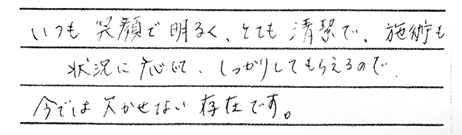 いつも笑顔で明るく、とても清潔で、施術も
状況に応じて、しっかりしてもらえるので、
今では欠かせない存在です。